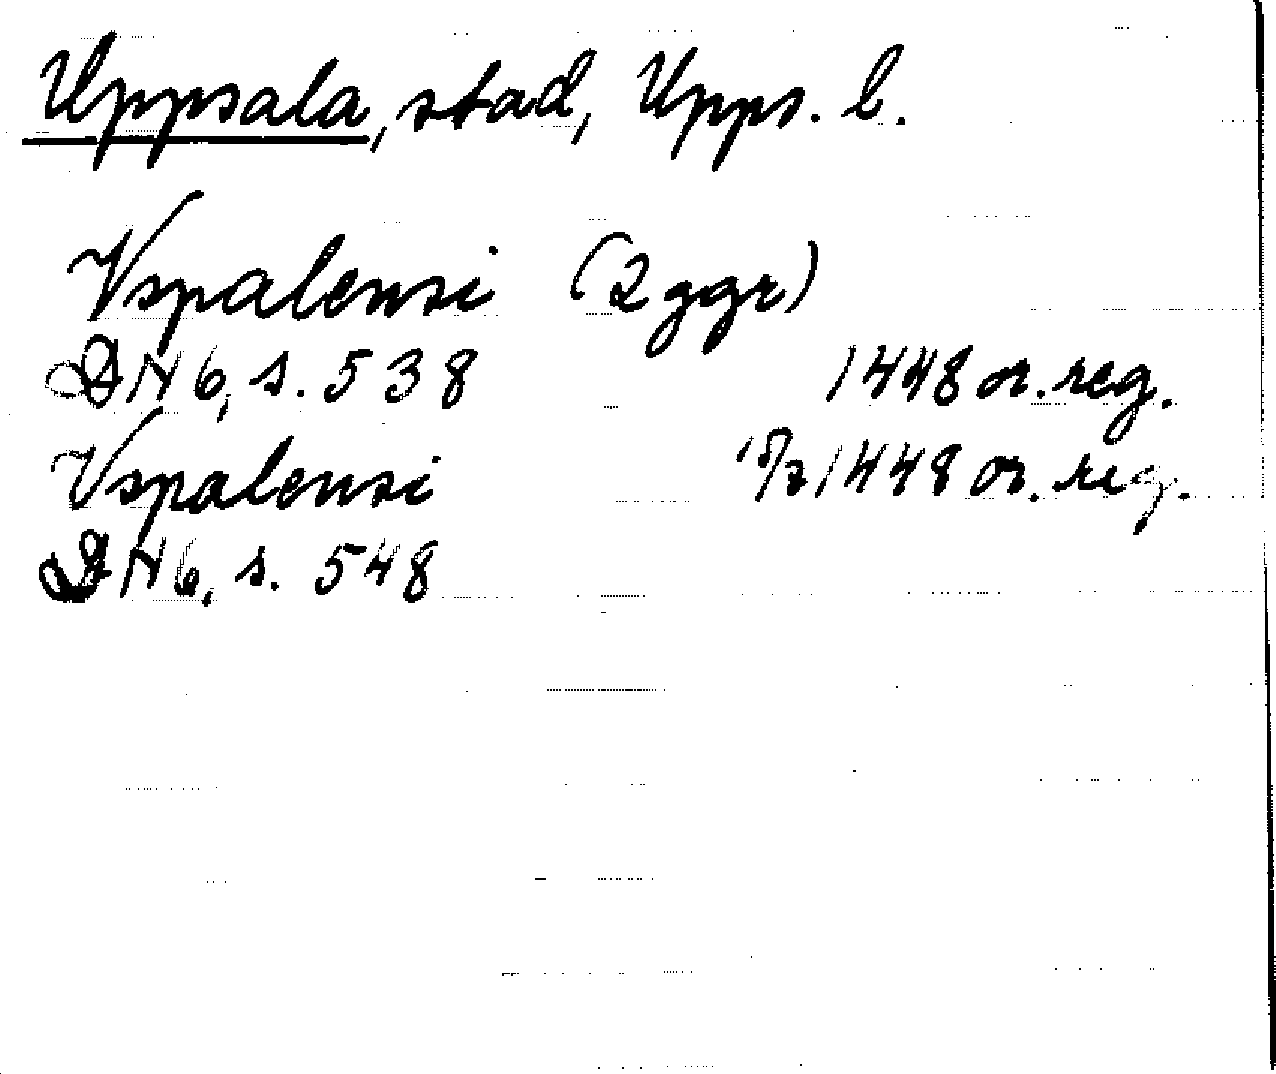 Uppsala, stad, Upps. l.
Vspalensi (2 ggr)
DN 6, s. 538 1448 or. reg.
Vspalensi 15/2 1448 or. reg.
DN 6, s. 548